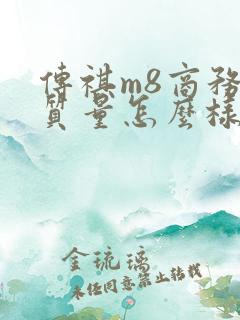 傳祺m8商務
質量怎麼樣
金琉璃
未經同意禁止轉載